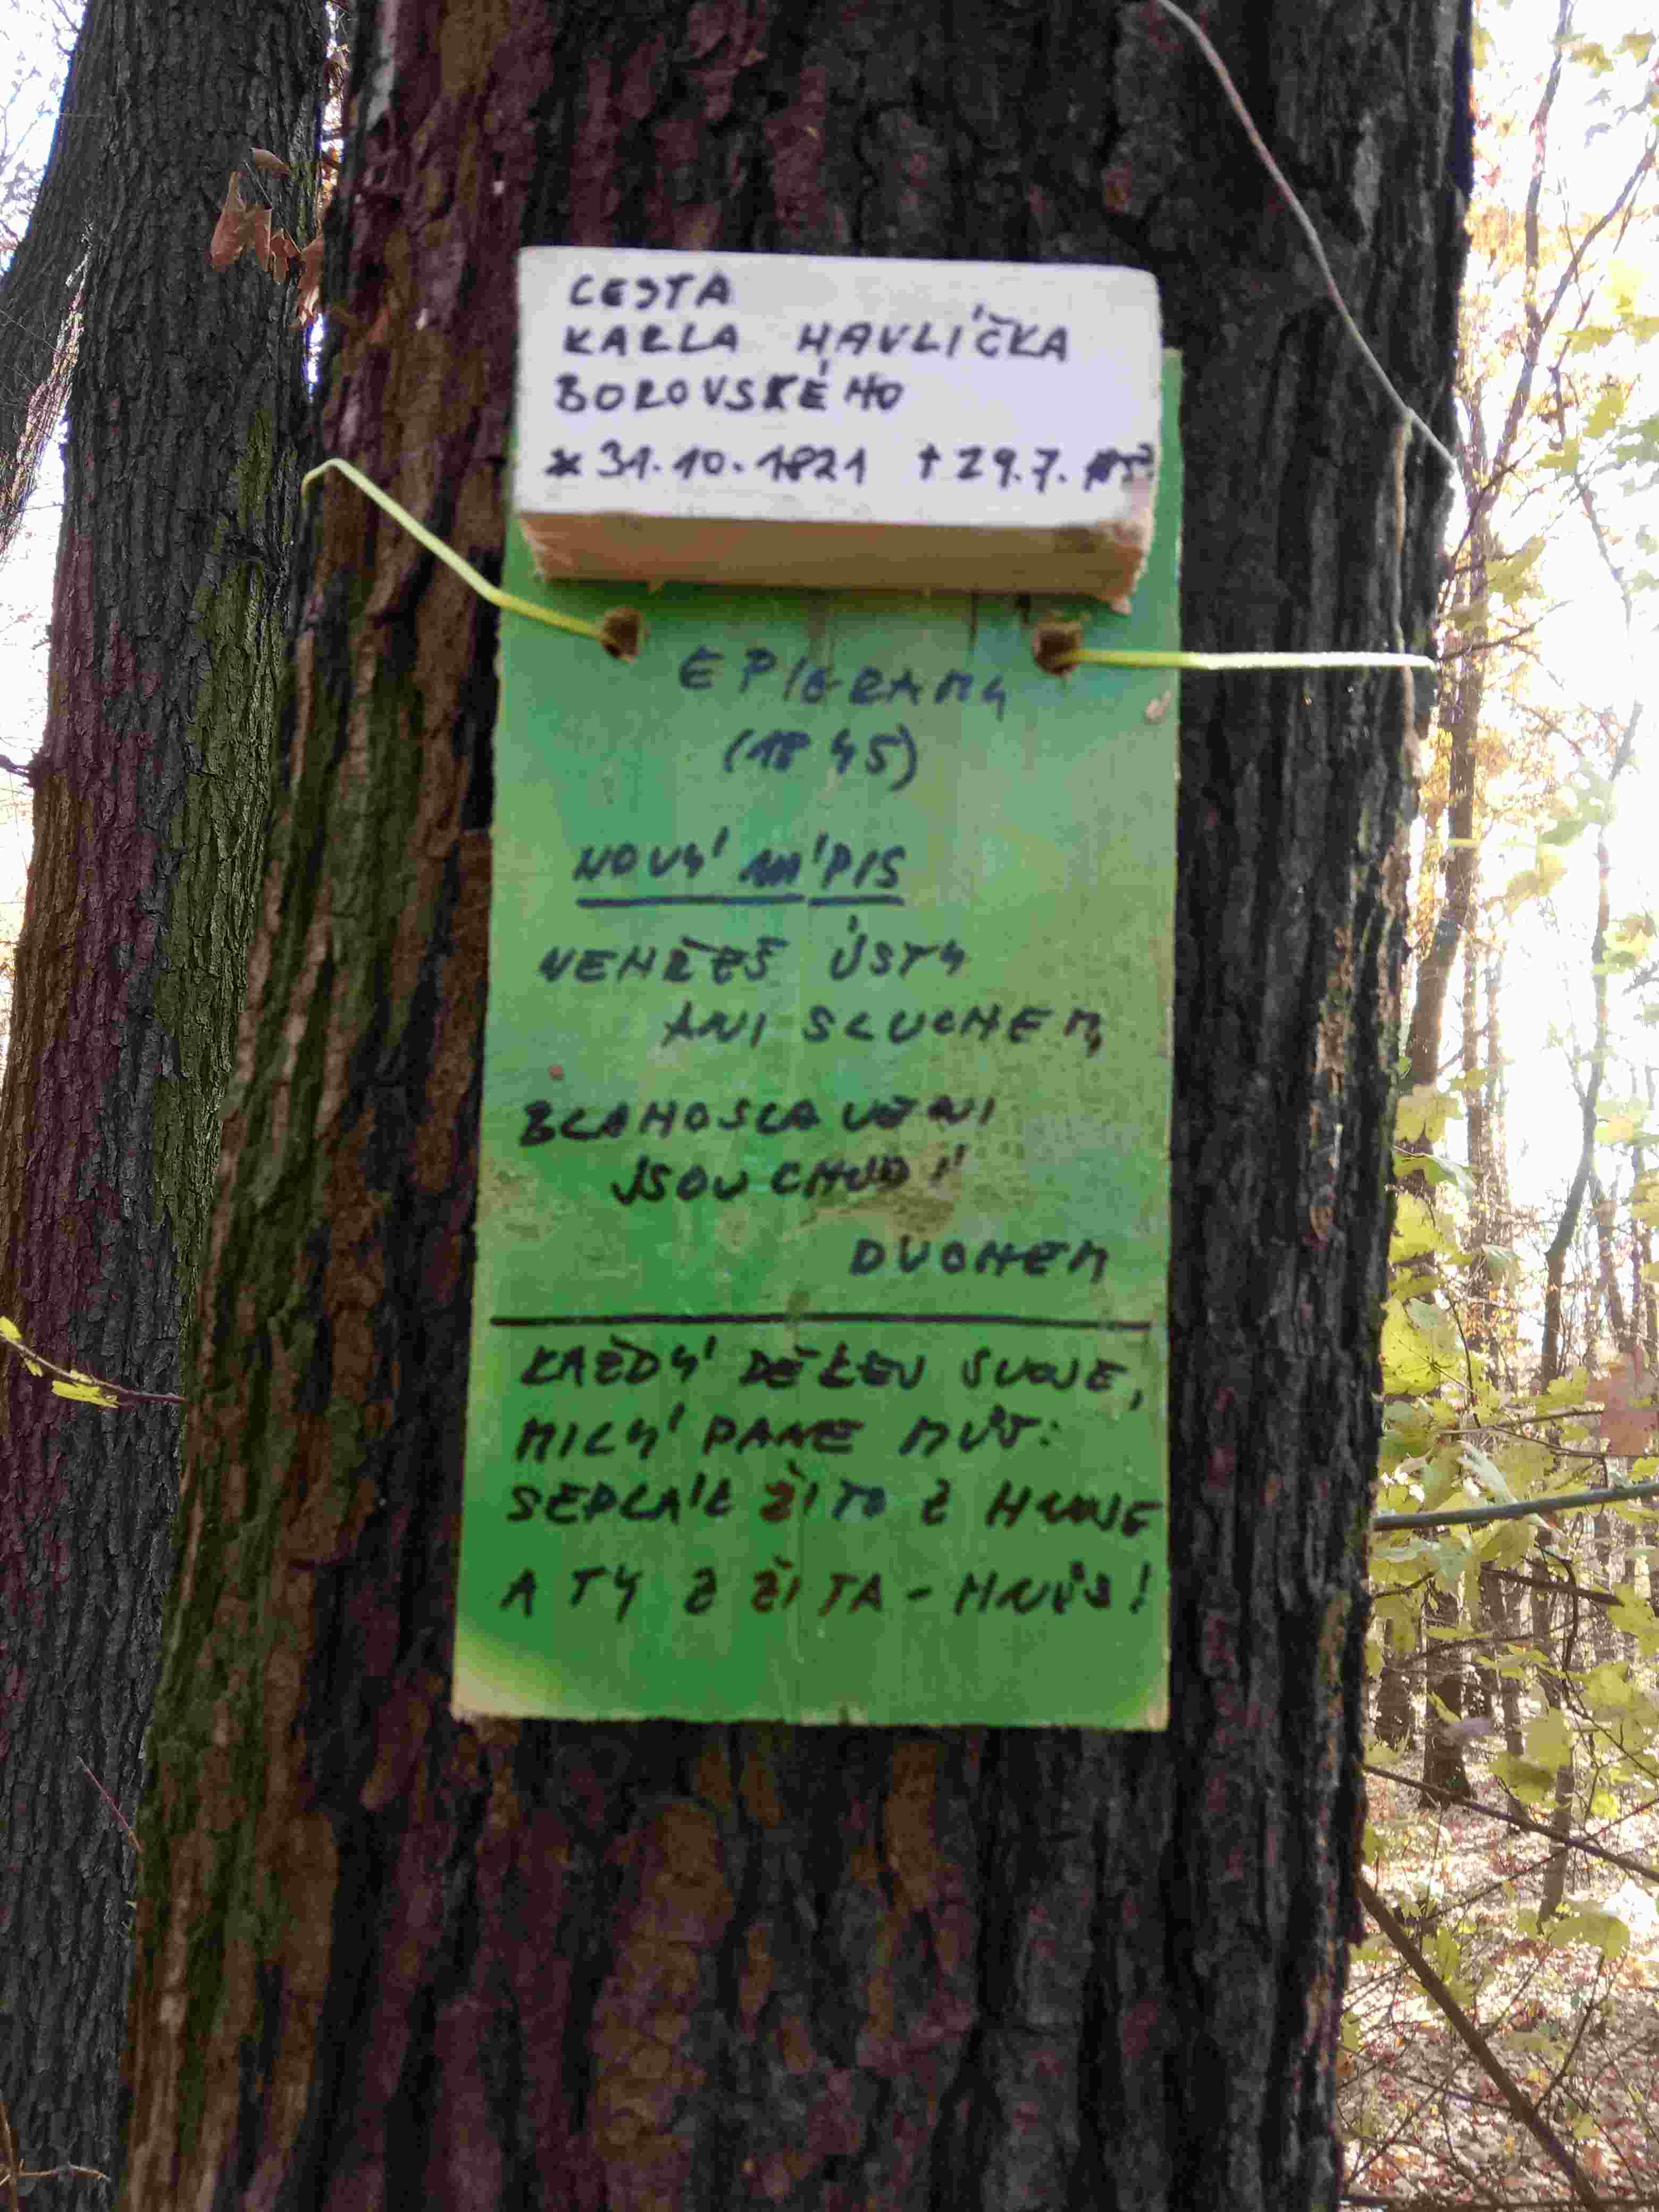 CESTA
KARLA HAVLÍČKA
BOROVSKÉHO
* 31.10.1821 † 29.7.
EPIGRAMY
(1845)
NOVÝ NÁPIS
NEHŘEŠ ÚSTY
ANI SLUCHEM,
BLAHOSLAVENI
JSOU CHUDÍ
DUCHEM
KAŽDÝ DĚLEJ SVOJE,
MILÝ PANE MŮJ:
SEDLÁK ŽITO Z HNOJE
A TY Z ŽITA - HNŮJ!